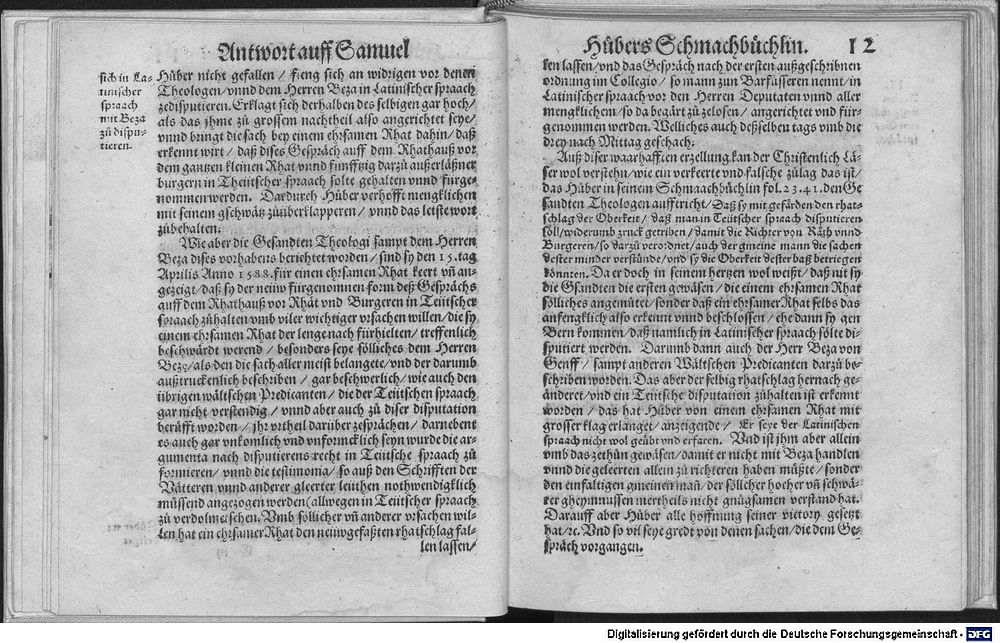 Antwort auff Samuel
sich in La-
tinischer
spraach
mit Beza
zů dispu-
tieren.
Hůber nicht gefallen / fieng sich an widrigen vor denen
Theologen / vnnd dem Herren Beza in Latinischer spraach
zedisputieren. Erklagt sich derhalben des selbigen gar hoch /
als das jhme zů grossem nachtheil also angerichtet seye /
vnnd bringt die sach bey einem ehrsamen Rhat dahin / daß
erkennt wirt / daß dises Gespräch auff dem Rhathauß vor
dem gantzen kleinen Rhat vnnd fünfftzig darzů außerläßner
burgern in Theütscher spraach solte gehalten vnnd fürge-
nommen werden. Dardurch Hůber verhofft mengklichen
mit seinem gschwätz zůüberklapperen / vnnd das letste wort
zůbehalten.
Wie aber die Gesandten Theologi sampt dem Herren
Beza dises vorhabens berichtet worden / sind sy den 15. tag
Aprilis Anno 1588. für einen ehrsamen Rhat keert vñ an-
gezeigt / daß sy der neüw fürgenomnen form deß Gesprächs
auff dem Rhathauß vor Rhät vnd Burgeren in Teütscher
spraach zůhalten vmb viler wichtiger vrsachen willen / die sy
einem ehrsamen Rhat der lenge nach fürhielten / treffenlich
beschwärdt werend / besonders seye sölliches dem Herren
Beze / als den die sach aller meist belangete / vnd der darumb
außtruckenlich beschriben / gar beschwerlich / wie auch den
übrigen wältschen Predicanten / die der Teütschen spraach
gar nicht verstendig / vnnd aber auch zů diser disputation
berüfft worden / jhr vrtheil darüber zesprächen / darnebent
es auch gar vnkomlich vnd vnformcklich seyn wurde die ar-
gumenta nach disputierens recht in Teütsche spraach zu
formieren / vnnd die testimonia / so auß den Schrifften der
Vätteren vnnd anderer gleerter leüthen nothwendigklich
müssend angezogen werden (allwegen in Teütscher spraach
zů verdolmetschen. Vmb söllicher vñ anderer vrsachen wil-
len hat ein ehrsamer Rhat den neüwgefaßten rhatschlag fal-
len lassen /
Hůbers Schmachbüchlin. 12
len lassen / vnd das Gespräch nach der ersten außgeschribnen
ordnung im Collegio / so mann zun Barfüsseren nennt / in
Latinischer spraach vor den Herren Deputaten vnnd aller
mengklichem / so da begärt zů zelosen / angerichtet vnd für-
genommen werden. Welliches auch desselben tags vmb die
drey nach Mittag geschach.
Auß diser waarhafften erzellung kan der Christenlich Lä-
ser wol verstehn / wie ein verkeerte vnd falsche zůlag das ist /
das Hůber in seinem Schmaachbüchlin fol. 23. 41. den Ge
sandten Theologen auffricht / Daß sy mit gefärden den rhat-
schlag der Oberkeit / daß man in Teütscher spraach disputieren
söll / widerumb zruck getriben / damit die Richter von Rägh vnnd
Burgeren / so darzů verordnet / auch der gmeine mann die sachen
dester minder verstünde / vnd sy die Oberkeit dester baß betriegen
könnten. Da er doch in seinem hertzen wol weißt / daß nit sy
die Gsandten die ersten gewäsen / die einem ehrsamen Rhat
sölliches angemůtet / sonder daß ein ehrsamer Rhat selbs das
anfengklich also erkennt vnnd beschlossen / ehe dann sy gen
Bern kommen / daß namlich in Latinischer spraach sölte di-
sputiert werden. Darumb dann auch der Herr Beza von
Genff / sampt anderen Wältschen Predicanten darzů be-
schriben worden. Das aber der selbig rhatschlag hernach ge-
änderet / vnd ein Teütsche disputation zůhalten ist erkennt
worden / das hat Hůber von einem ehrsamen Rhat mit
grosser klag erlanget / anzeigende / Er seye der Latinischen
spraach nicht wol geübt vnd erfaren. Vnd ist jhm aber allein
vmb das zethůn gewäsen / damit er nicht mit Beza handlen
vnnd die geleerten allein zu richteren haben můßte / sonder
den einfaltigen gmeinen mañ / der söllicher hocher vñ schwä-
rer gheymnussen mertheils nicht gnůgsamen verstand hat.
Darauff aber Hůber alle hoffnung seiner victory gesetzt
hat / ꝛc. Vnd so vil seye gredt von denen sachen / die dem Ge-
spräch vorgangen.
Digitalisierung gefördert durch die Deutsche Forschungsgemeinschaft - DFG